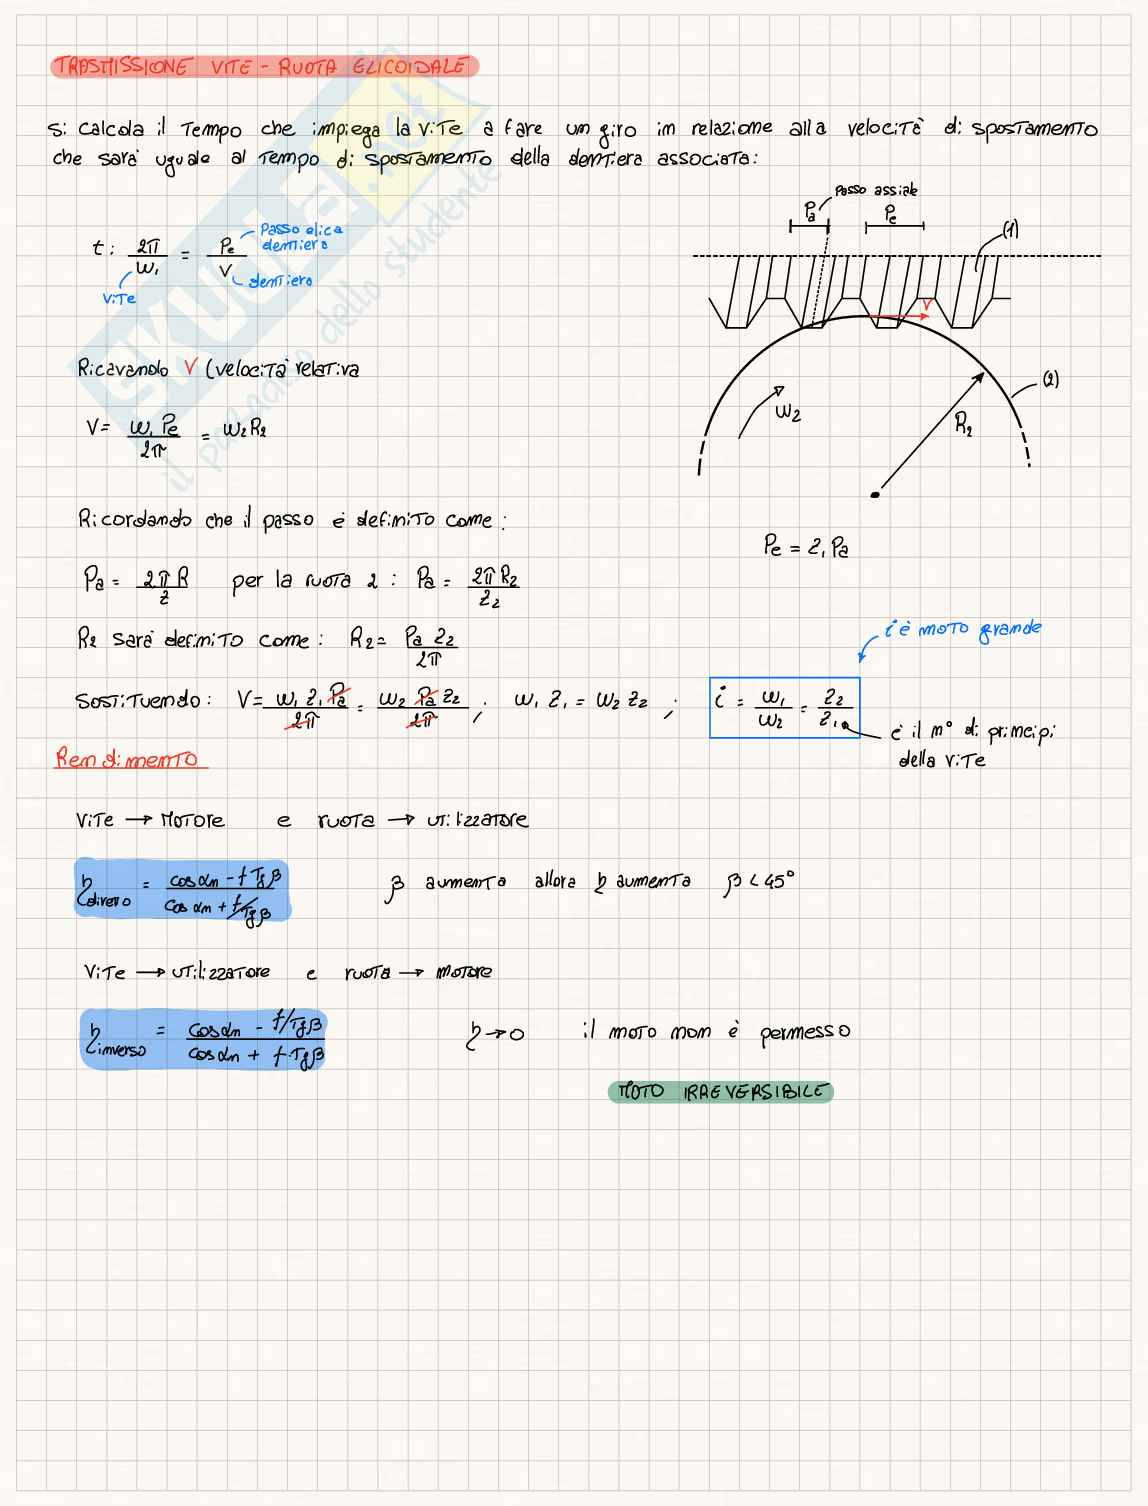 TRASMISSIONE VITE - RUOTA ELICOIDALE
Si calcola il tempo che impiega la vite a fare un giro in relazione alla velocità di spostamento
che sarà uguale al tempo di spostamento della dentiera associata:
passo assiale
Pa
Pe
(1)
t: 2π/ω₁ = Pe/V
Passo elica
dentiera
vite
dentiera
V
Ricavando V (velocità relativa
(2)
ω₂
R₂
V= ω₁ Pe/2π = ω₂R₂
Ricordando che il passo è definito come:
Pe = Z₁ Pa
Pa = 2πR/Z per la ruota 2: Pa = 2πR₂/Z₂
R₂ sarà definito come: R₂= Pa Z₂/2π
i è moto grande
Sostituendo: V= ω₁ Z₁ Pa/2π = ω₂ Pa Z₂/2π ; ω₁ Z₁ = ω₂ Z₂ ; i = ω₁/ω₂ = Z₂/Z₁
è il n° di principi
della vite
Rendimento
Vite → Motore e ruota → utilizzatore
η diretto = cos αn - f Tg β / cos αn + f/Tg β
β aumenta allora η aumenta β < 45°
Vite → utilizzatore e ruota → motore
η inverso = cos αn - f/Tg β / cos αn + f·Tg β
η→0 il moto non è permesso
MOTO IRREVERSIBILE
SKUOLA.net
il paradiso dello studente